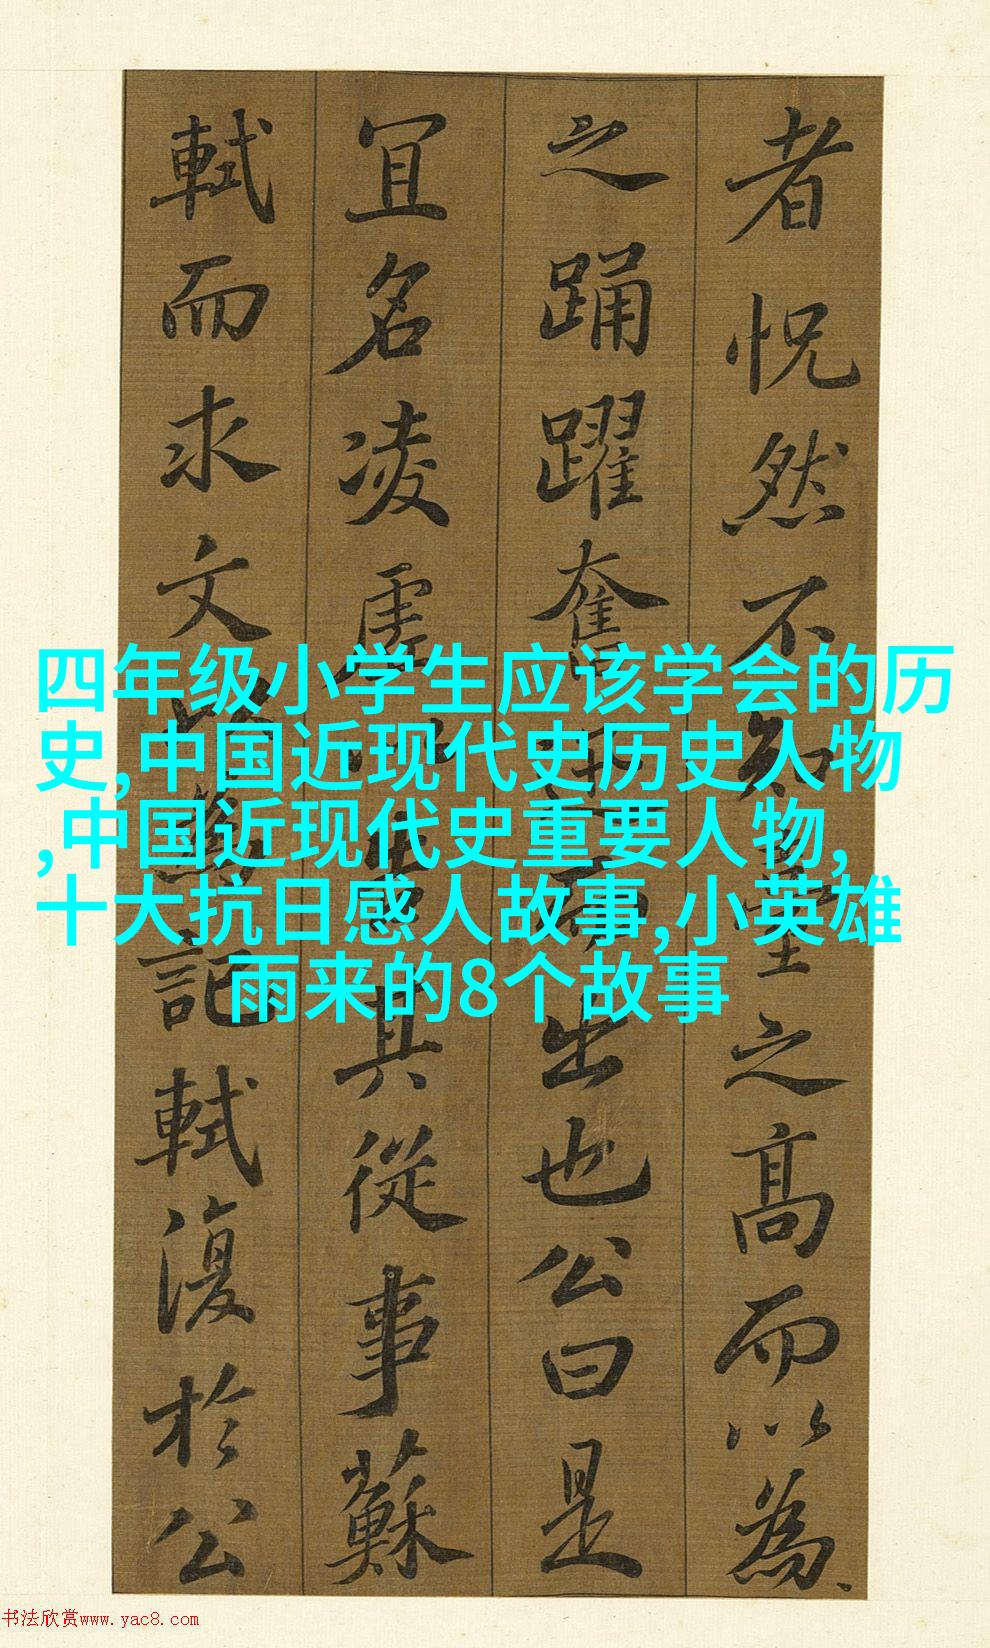 者怳然不知臺之髙而以為
之踊躍奮迅而出也公曰是
冝名凌虚以告其從事蘇
軾而求文以為記軾復於公
四年级小学生应该学会的历
史,中国近现代史历史人物
,中国近现代史重要人物,
十大抗日感人故事,小英雄
雨来的8个故事
书法欣赏www.yac8.com